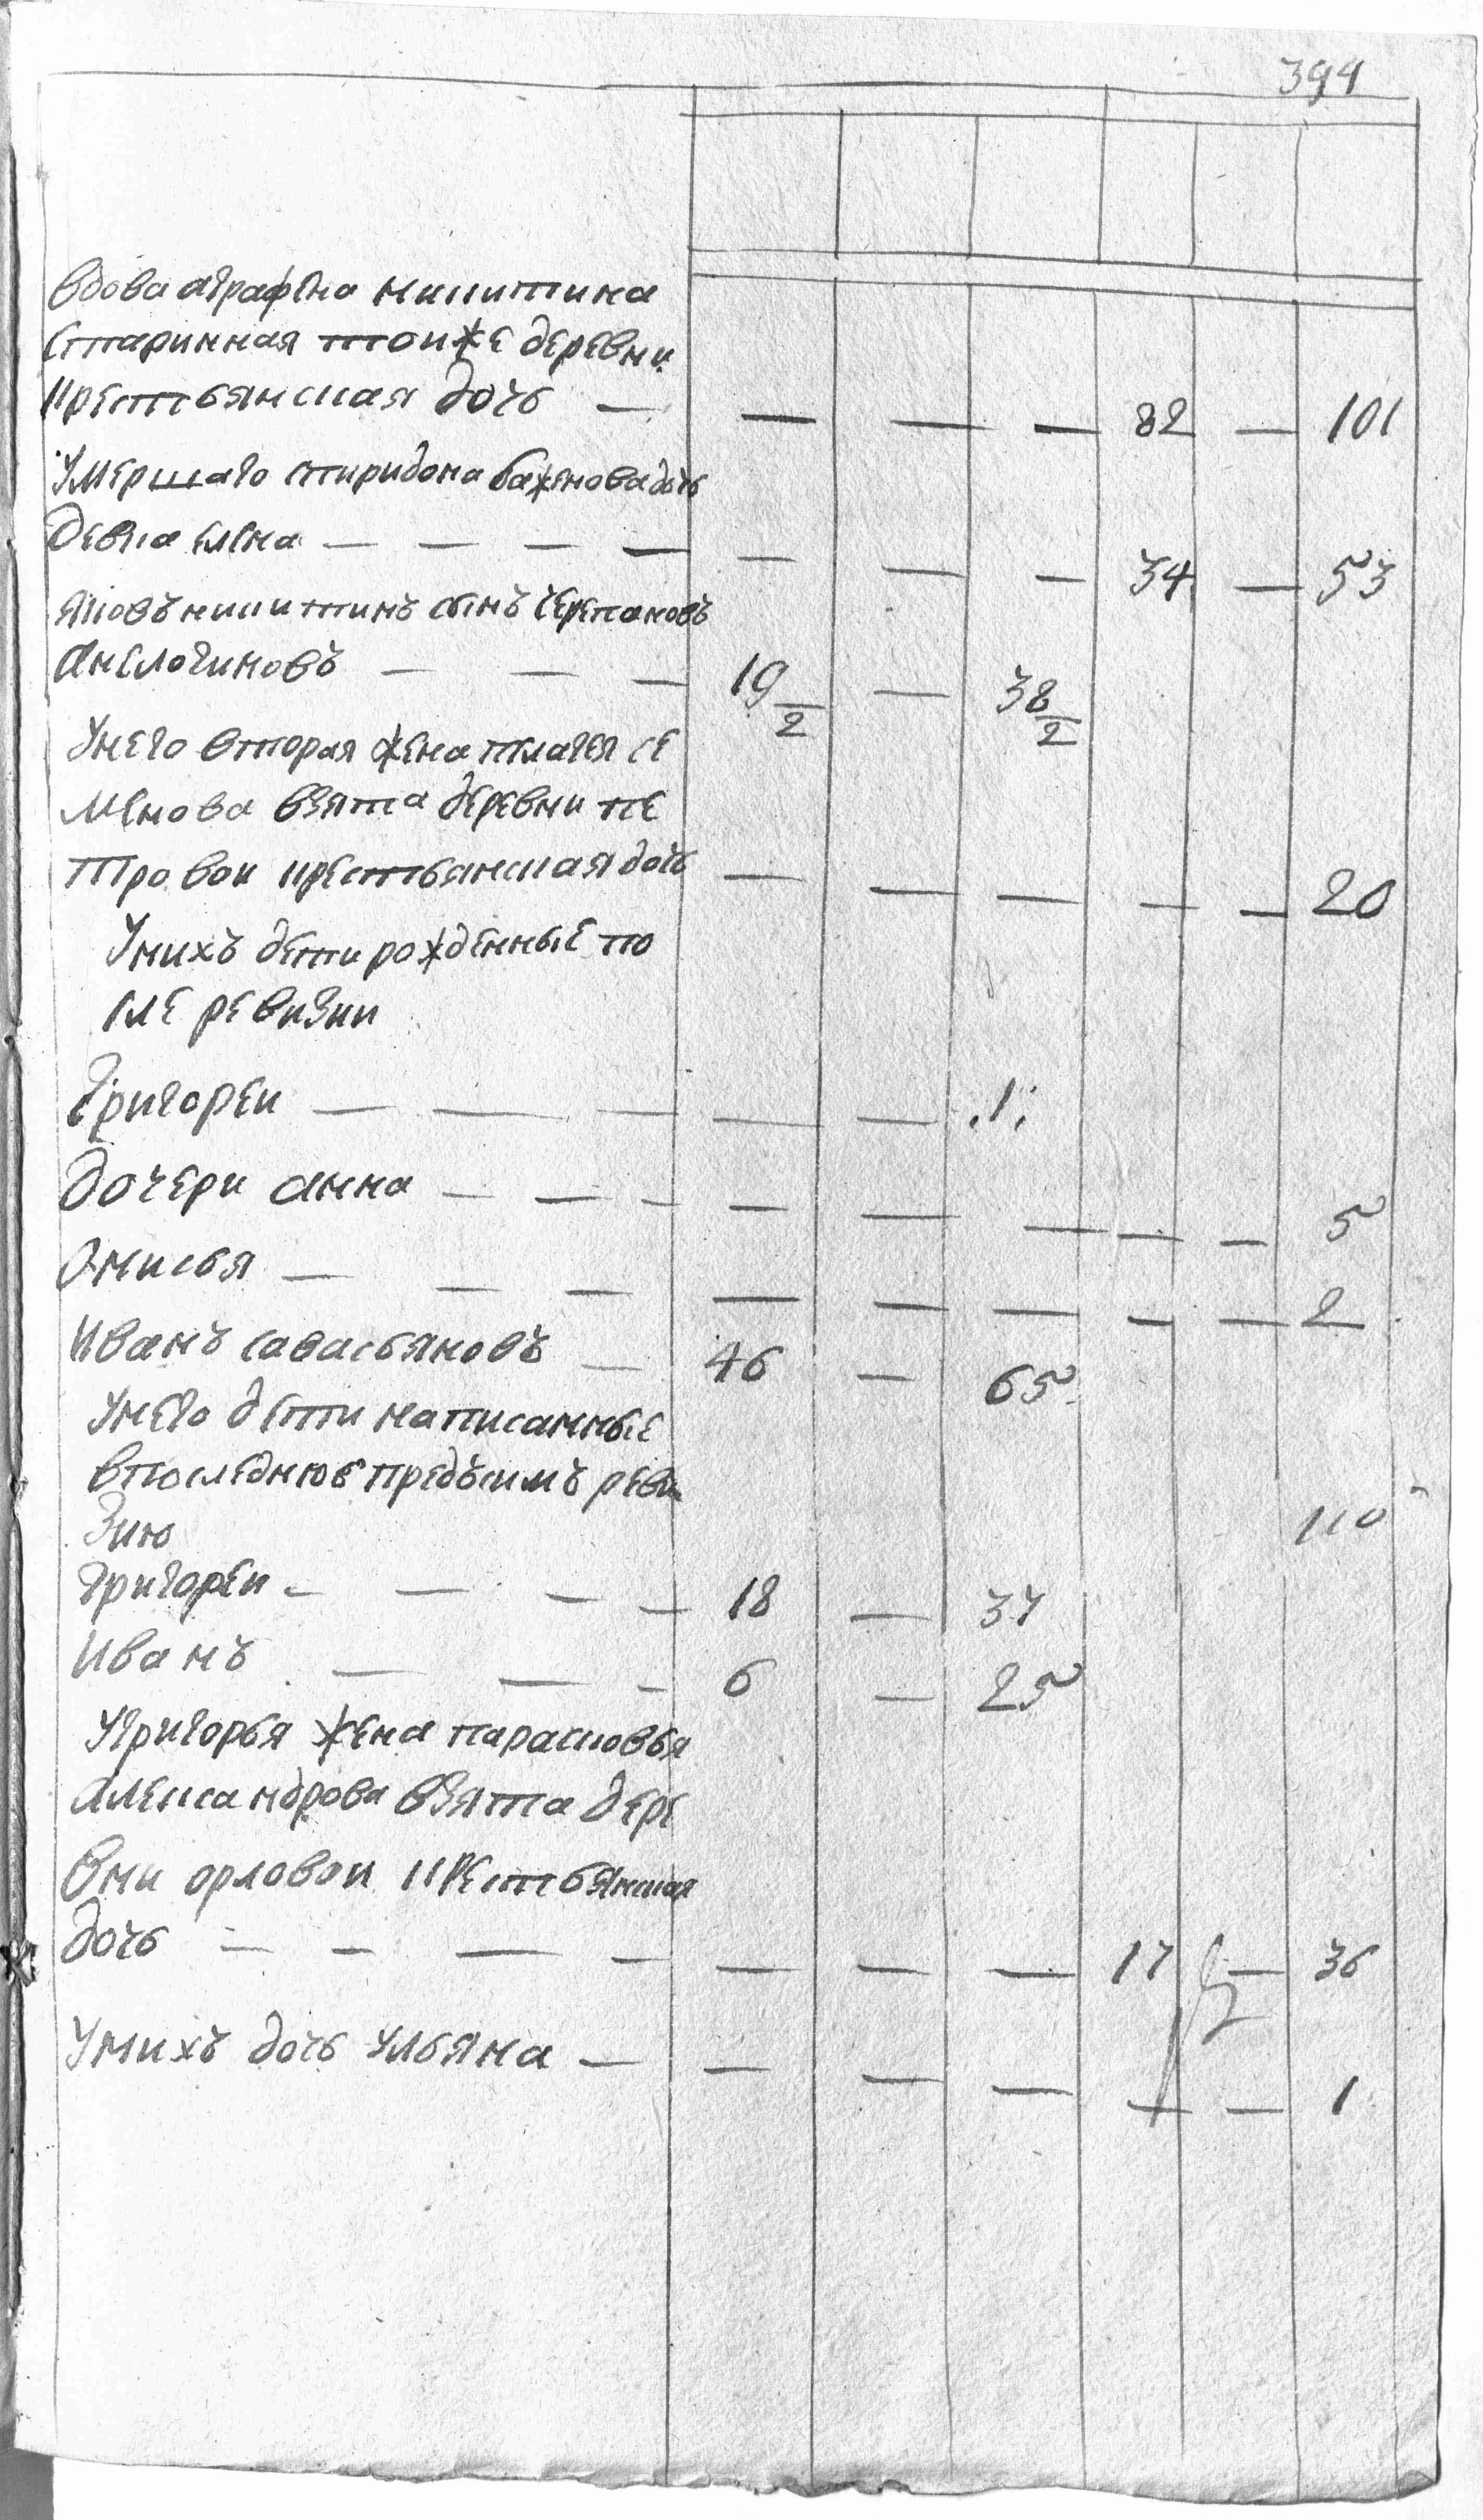 394
вдова аграфена никитина
старинная тоиже деревни
крестьянская дочь — — — — 82 — 101
умершаго спиридона баженова дочь
девка елена — — — — — — — 34 — 53
яковъ никитинъ сынъ черепановъ
Анслогиновъ — — — 19/2 — 38/2
унего вторая жена пелагея се
менова взята деревни пе
тровои крестьянская дочь — — — — — 20
унихъ дети рожденные по
сле ревизии
григореи — — — — — 1
дочери анна — — — — — — — — 5
Анисья — — — — — — — — 2
иванъ савасьяновъ — 46 — 65
унего дети написанные
впоследнюю предъсимъ реви
зию
110
григореи — — — — 18 — 37
иванъ — — — 6 — 25
угригорья жена парасковья
александрова взята дере
вни орловои крестьянская
дочь — — — — — — — 17 — 36
унихъ дочь ульяна — — — — — — 1